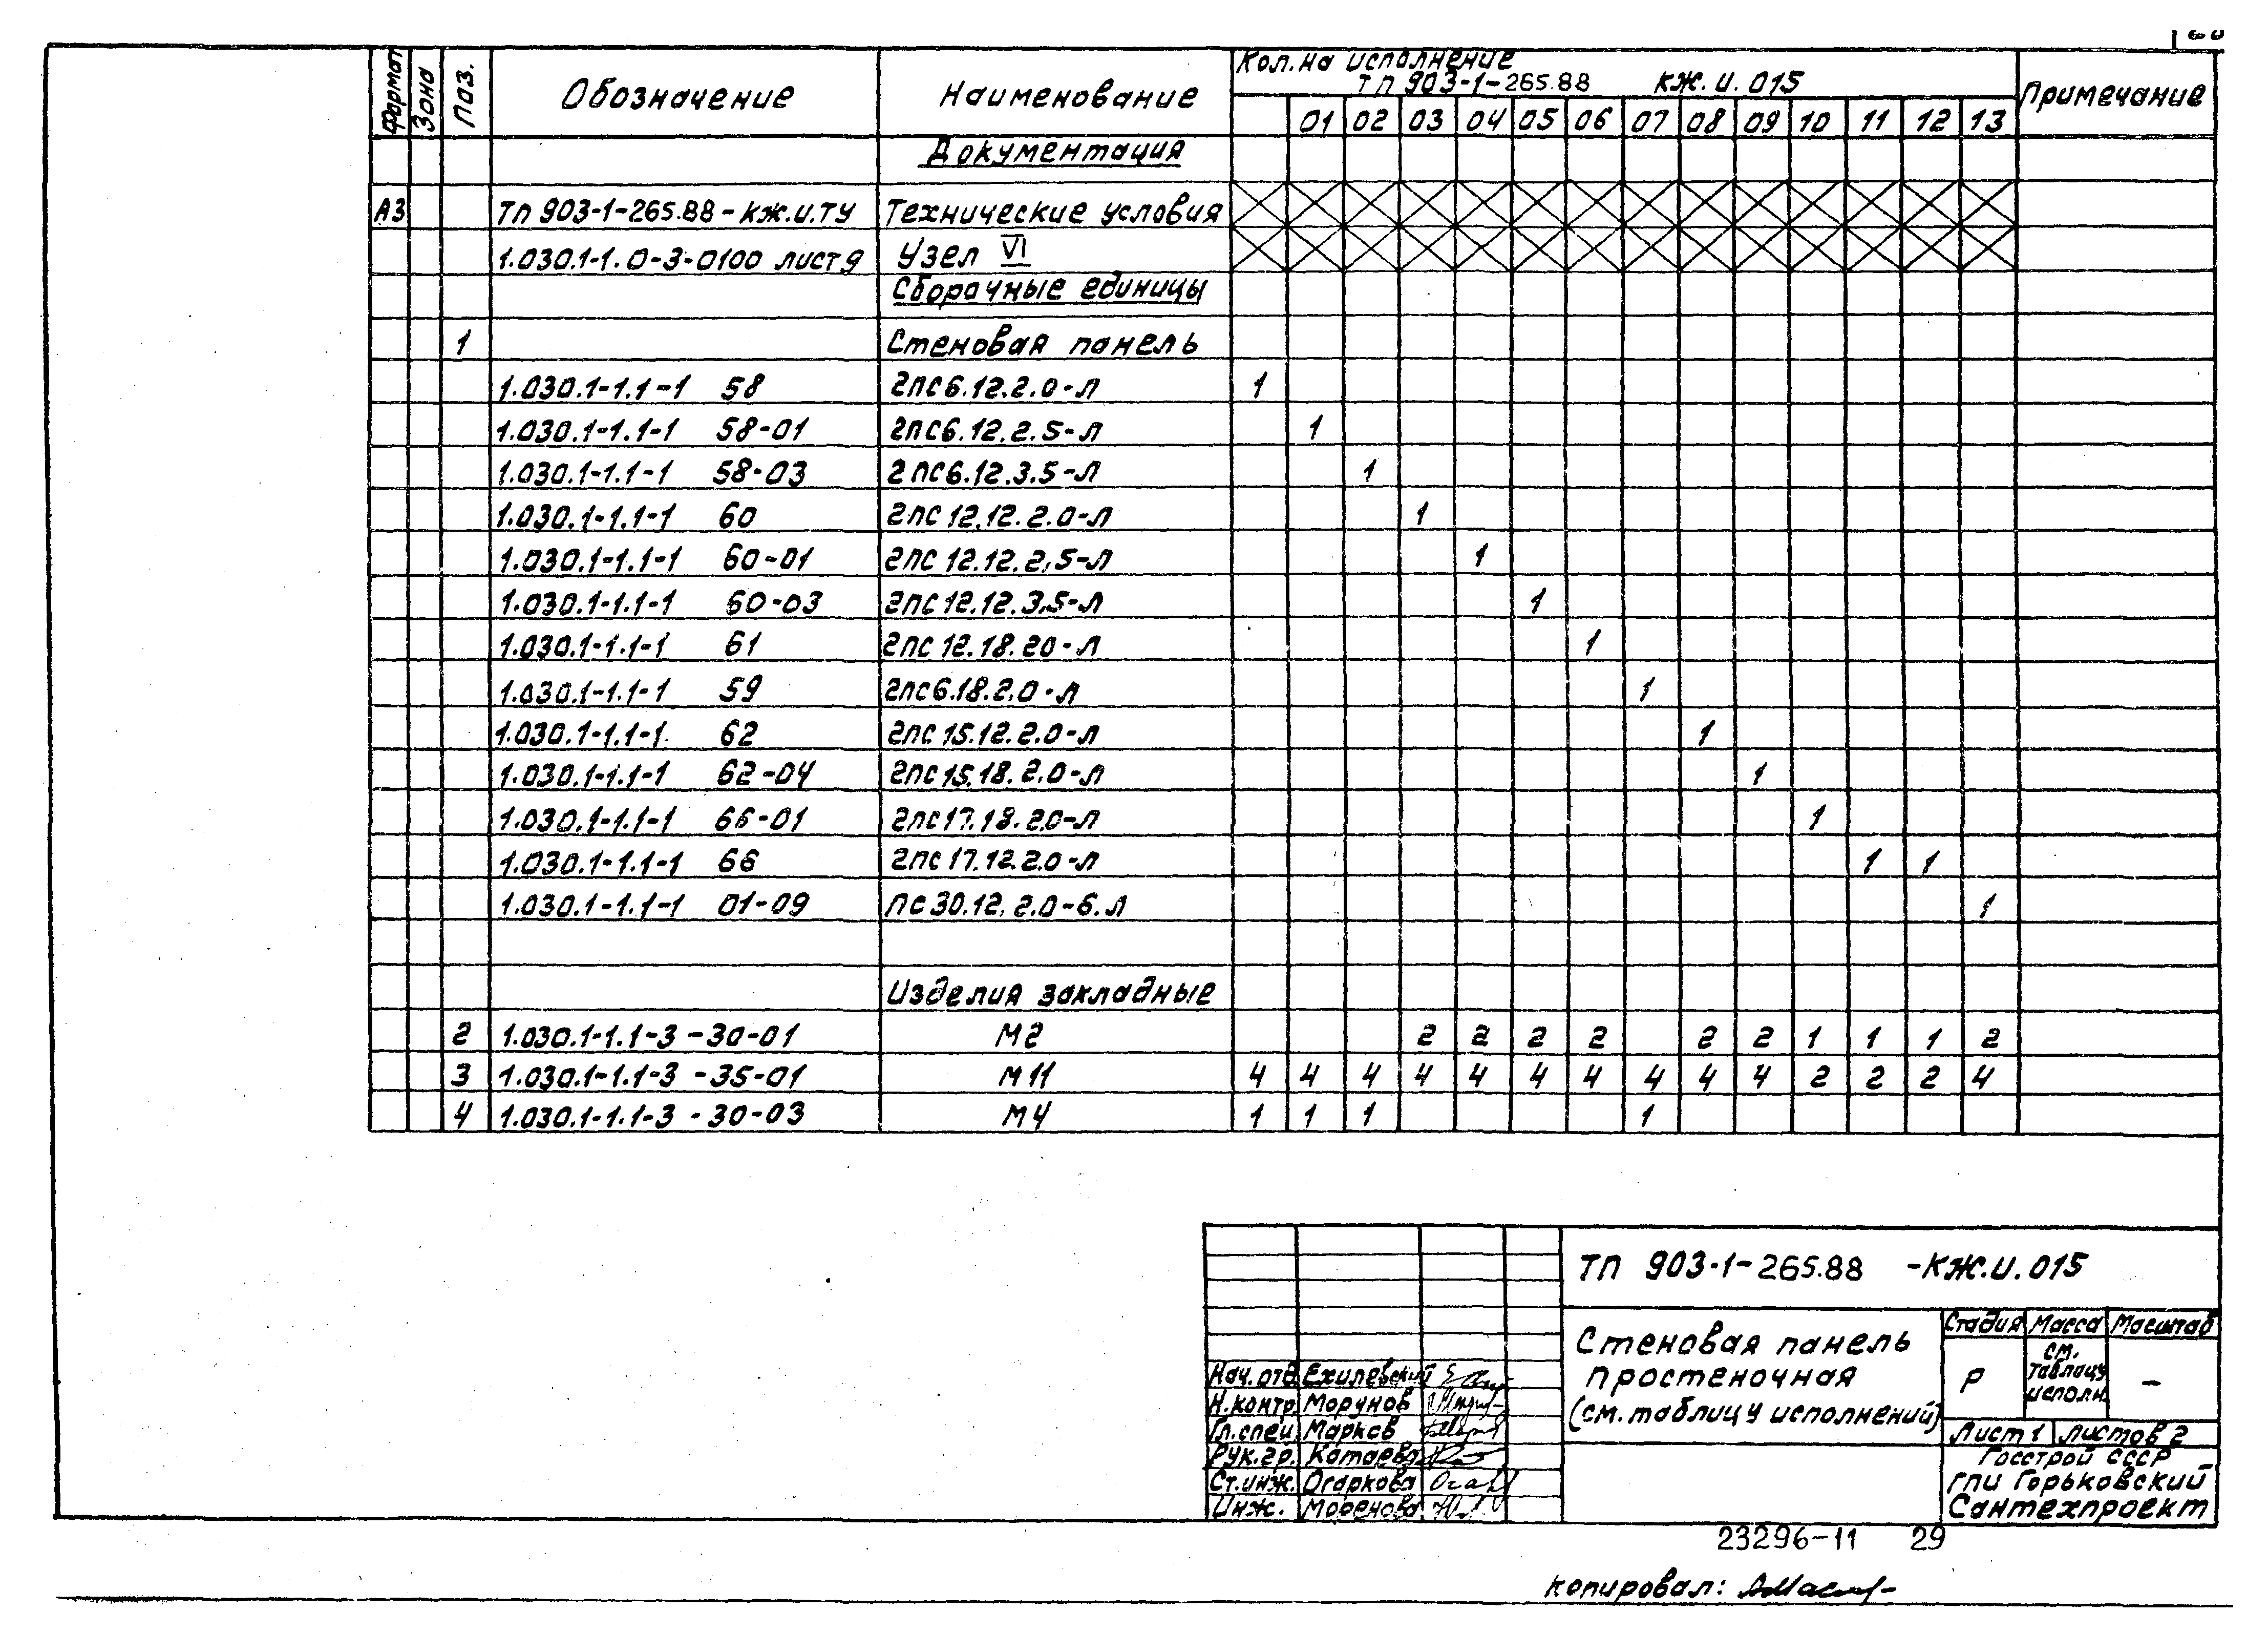 Формат Зона Поз. Обозначение Наименование Кол. на исполнение Примечание
ТП 903-1-265.88 КЖ.И.015
01 02 03 04 05 06 07 08 09 10 11 12 13
Документация
А3 ТП 903-1-265.88-КЖ.И.ТУ Технические условия
1.030.1-1.0-3-0100 лист 9 Узел VI
Сборочные единицы
1 Стеновая панель
1.030.1-1.1-1 58 2ПС6.12.2.0-Л 1
1.030.1-1.1-1 58-01 2ПС6.12.2.5-Л 1
1.030.1-1.1-1 58-03 2ПС6.12.3.5-Л 1
1.030.1-1.1-1 60 2ПС12.12.2.0-Л 1
1.030.1-1.1-1 60-01 2ПС12.12.2,5-Л 1
1.030.1-1.1-1 60-03 2ПС12.12.3,5-Л 1
1.030.1-1.1-1 61 2ПС12.18.20-Л 1
1.030.1-1.1-1 59 2ПС6.18.2.0-Л 1
1.030.1-1.1-1. 62 2ПС15.12.2.0-Л 1
1.030.1-1.1-1 62-04 2ПС15.18.2.0-Л 1
1.030.1-1.1-1 66-01 2ПС17.18.2.0-Л 1
1.030.1-1.1-1 66 2ПС17.12.2.0-Л 1 1
1.030.1-1.1-1 01-09 ПС30.12.2.0-6.Л 1
Изделия закладные
2 1.030.1-1.1-3-30-01 М2 2 2 2 2 2 2 1 1 1 2
3 1.030.1-1.1-3-35-01 М11 4 4 4 4 4 4 4 4 4 4 2 2 2 4
4 1.030.1-1.1-3-30-03 М4 1 1 1 1
ТП 903-1-265.88 -КЖ.И.015
Стеновая панель
простеночная
(см. таблицу исполнений)
Стадия Масса Масштаб
Р см. таблицу исполн. –
Лист 1 Листов 2
Госстрой СССР
ГПИ Горьковский
Сантехпроект
Нач. отд. Ехилевский
Н. контр. Морунов
Гл. спец. Марков
Рук. гр. Катаева
Ст. инж. Огаркова
Инж.
23296-11 29
Копировал: